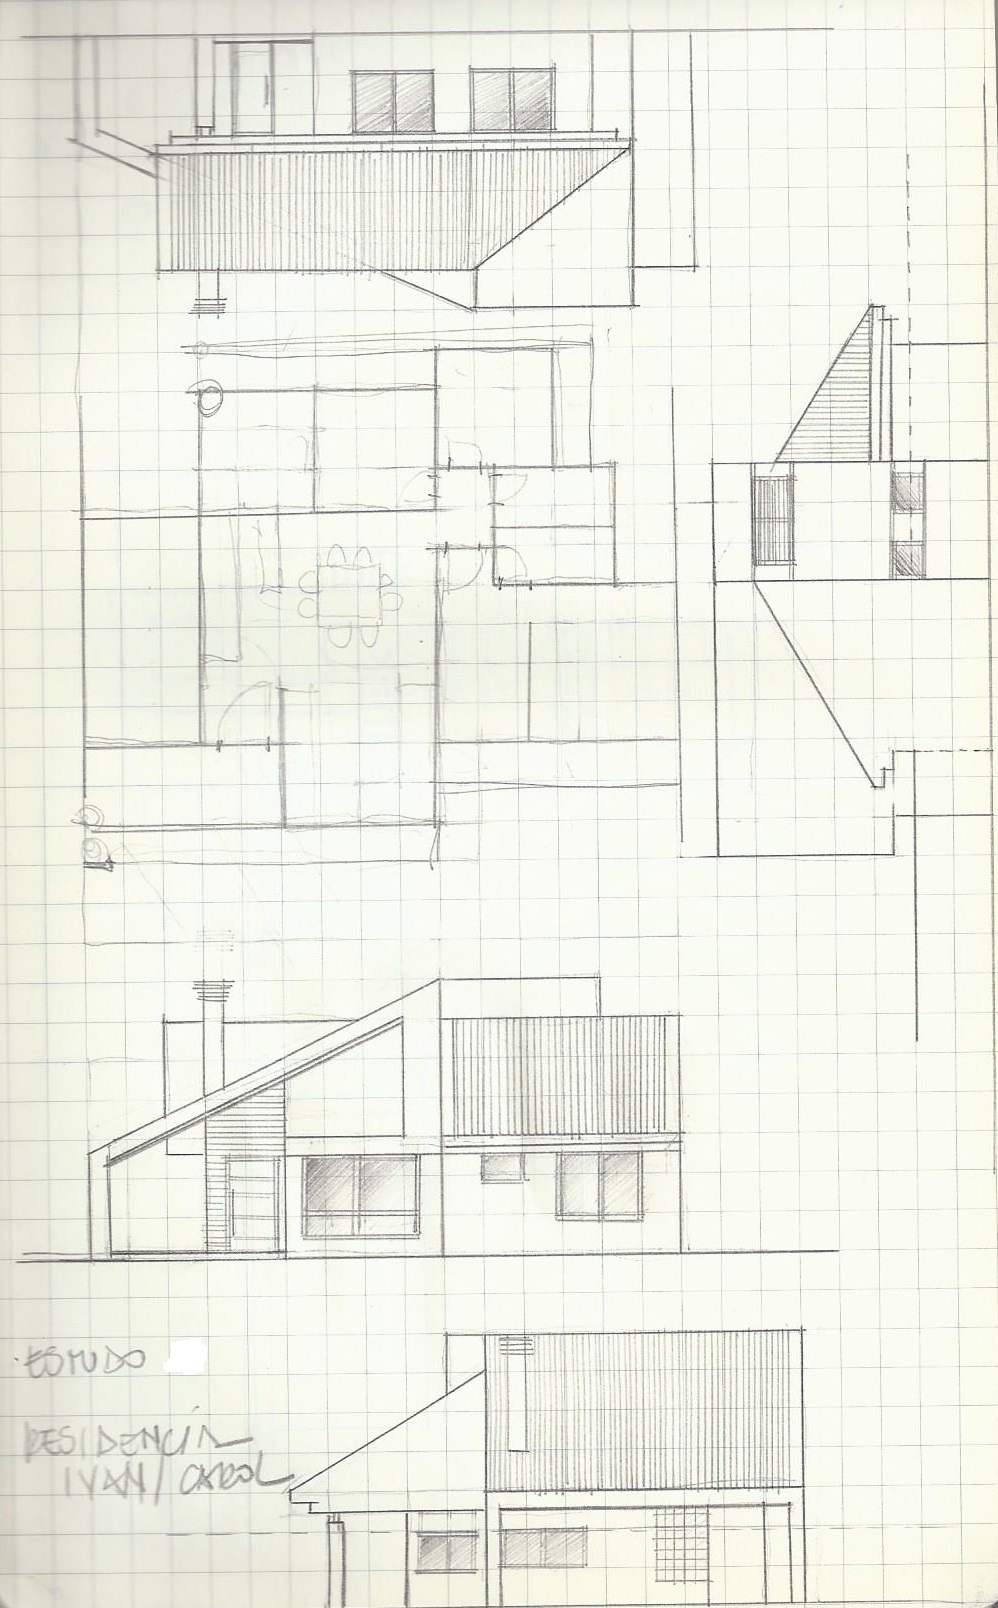 ESTUDO
RESIDENCIA
IVAN / CAROL